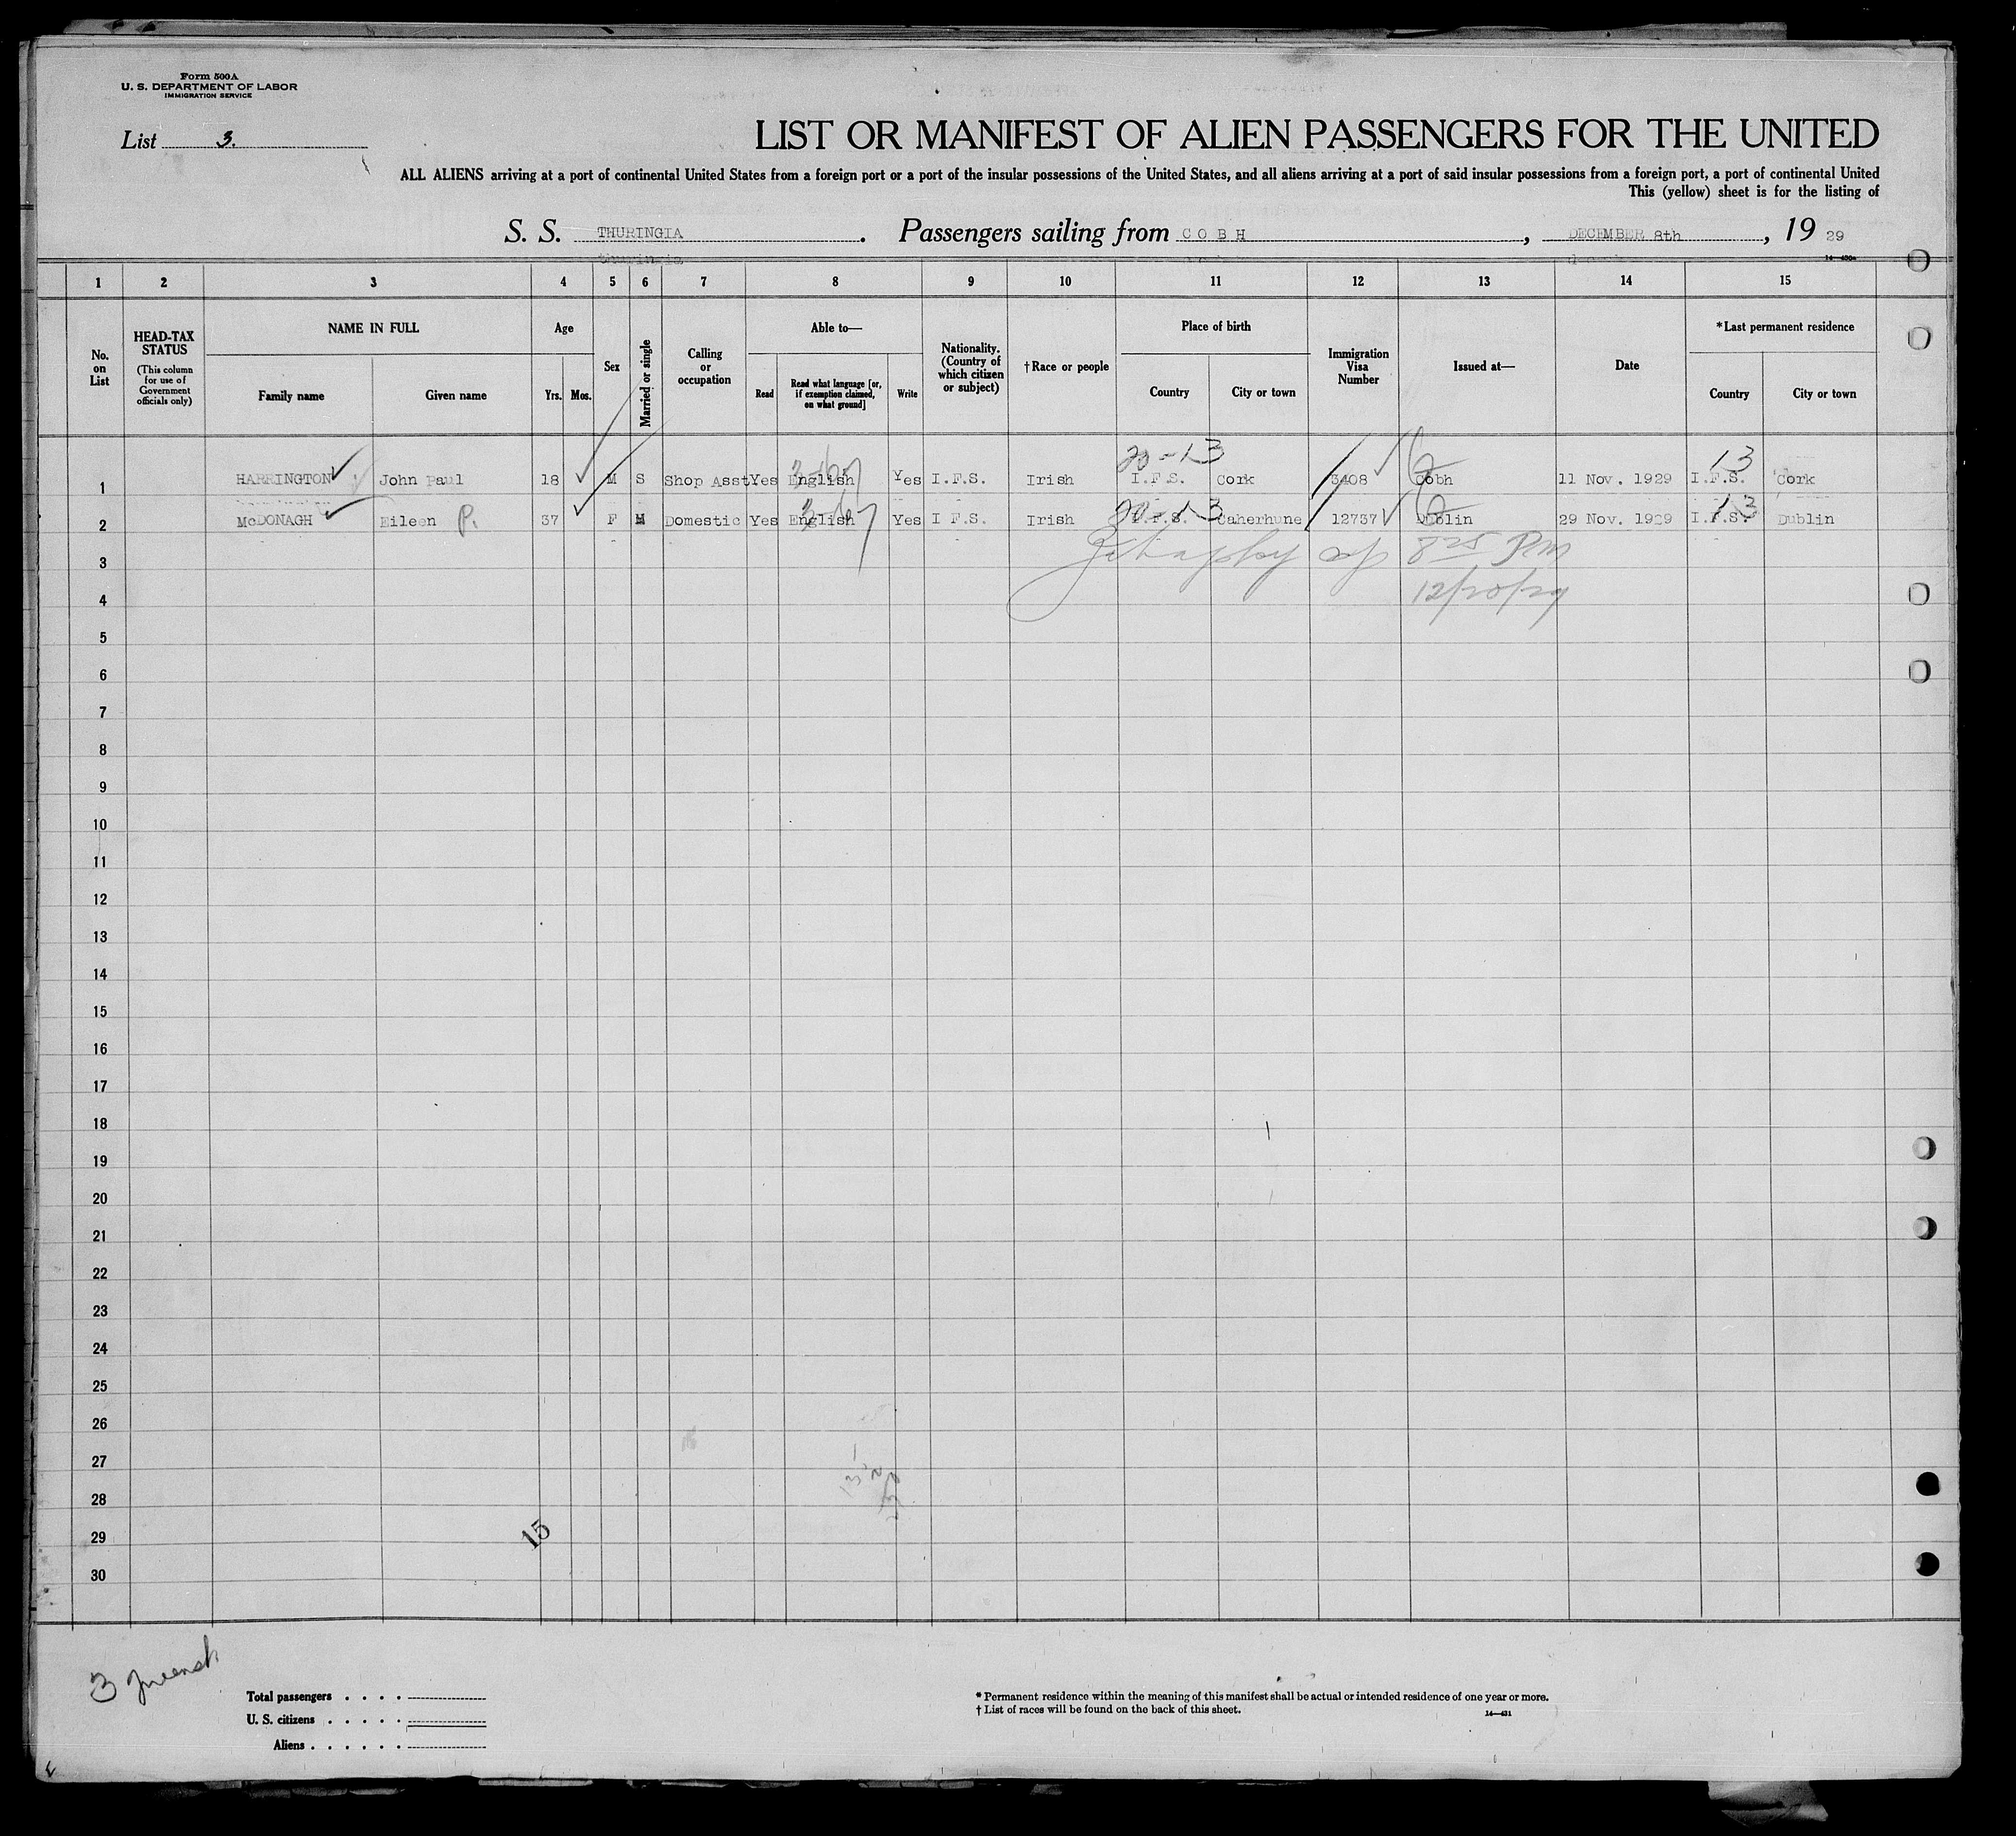 Form 500A
U. S. DEPARTMENT OF LABOR
IMMIGRATION SERVICE
List 3.
LIST OR MANIFEST OF ALIEN PASSENGERS FOR THE UNITED
ALL ALIENS arriving at a port of continental United States from a foreign port or a port of the insular possessions of the United States, and all aliens arriving at a port of said insular possessions from a foreign port, a port of continental United
This (yellow) sheet is for the listing of
S. S. THURINGIA. Passengers sailing from COBH, DECEMBER 8th, 19 29
1 2 3 4 5 6 7 8 9 10 11 12 13 14 15
No. on List
HEAD-TAX STATUS
(This column for use of Government officials only)
NAME IN FULL
Family name Given name
Age
Yrs. Mos.
Sex
Married or single
Calling or occupation
Able to—
Read Read what language [or, if exemption claimed, on what ground] Write
Nationality. (Country of which citizen or subject)
†Race or people
Place of birth
Country City or town
Immigration Visa Number
Issued at—
Date
*Last permanent residence
Country City or town
20-13 13
1 HARRINGTON John Paul 18 M S Shop Asst Yes English Yes I.F.S. Irish I.F.S. Cork 3408 Cobh 11 Nov. 1929 I.F.S. Cork
20-13 13
2 McDONAGH Eileen P. 37 F M Domestic Yes English Yes I F.S. Irish I.F.S. Caherhune 12737 Dublin 29 Nov. 1929 I.F.S. Dublin
3 8 25 Pm
4 12/20/29
5
6
7
8
9
10
11
12
13
14
15
16
17
18
19
20
21
22
23
24
25
26
27
28
29 15
30
3
Total passengers
U. S. citizens
Aliens
* Permanent residence within the meaning of this manifest shall be actual or intended residence of one year or more.
† List of races will be found on the back of this sheet.
14—431